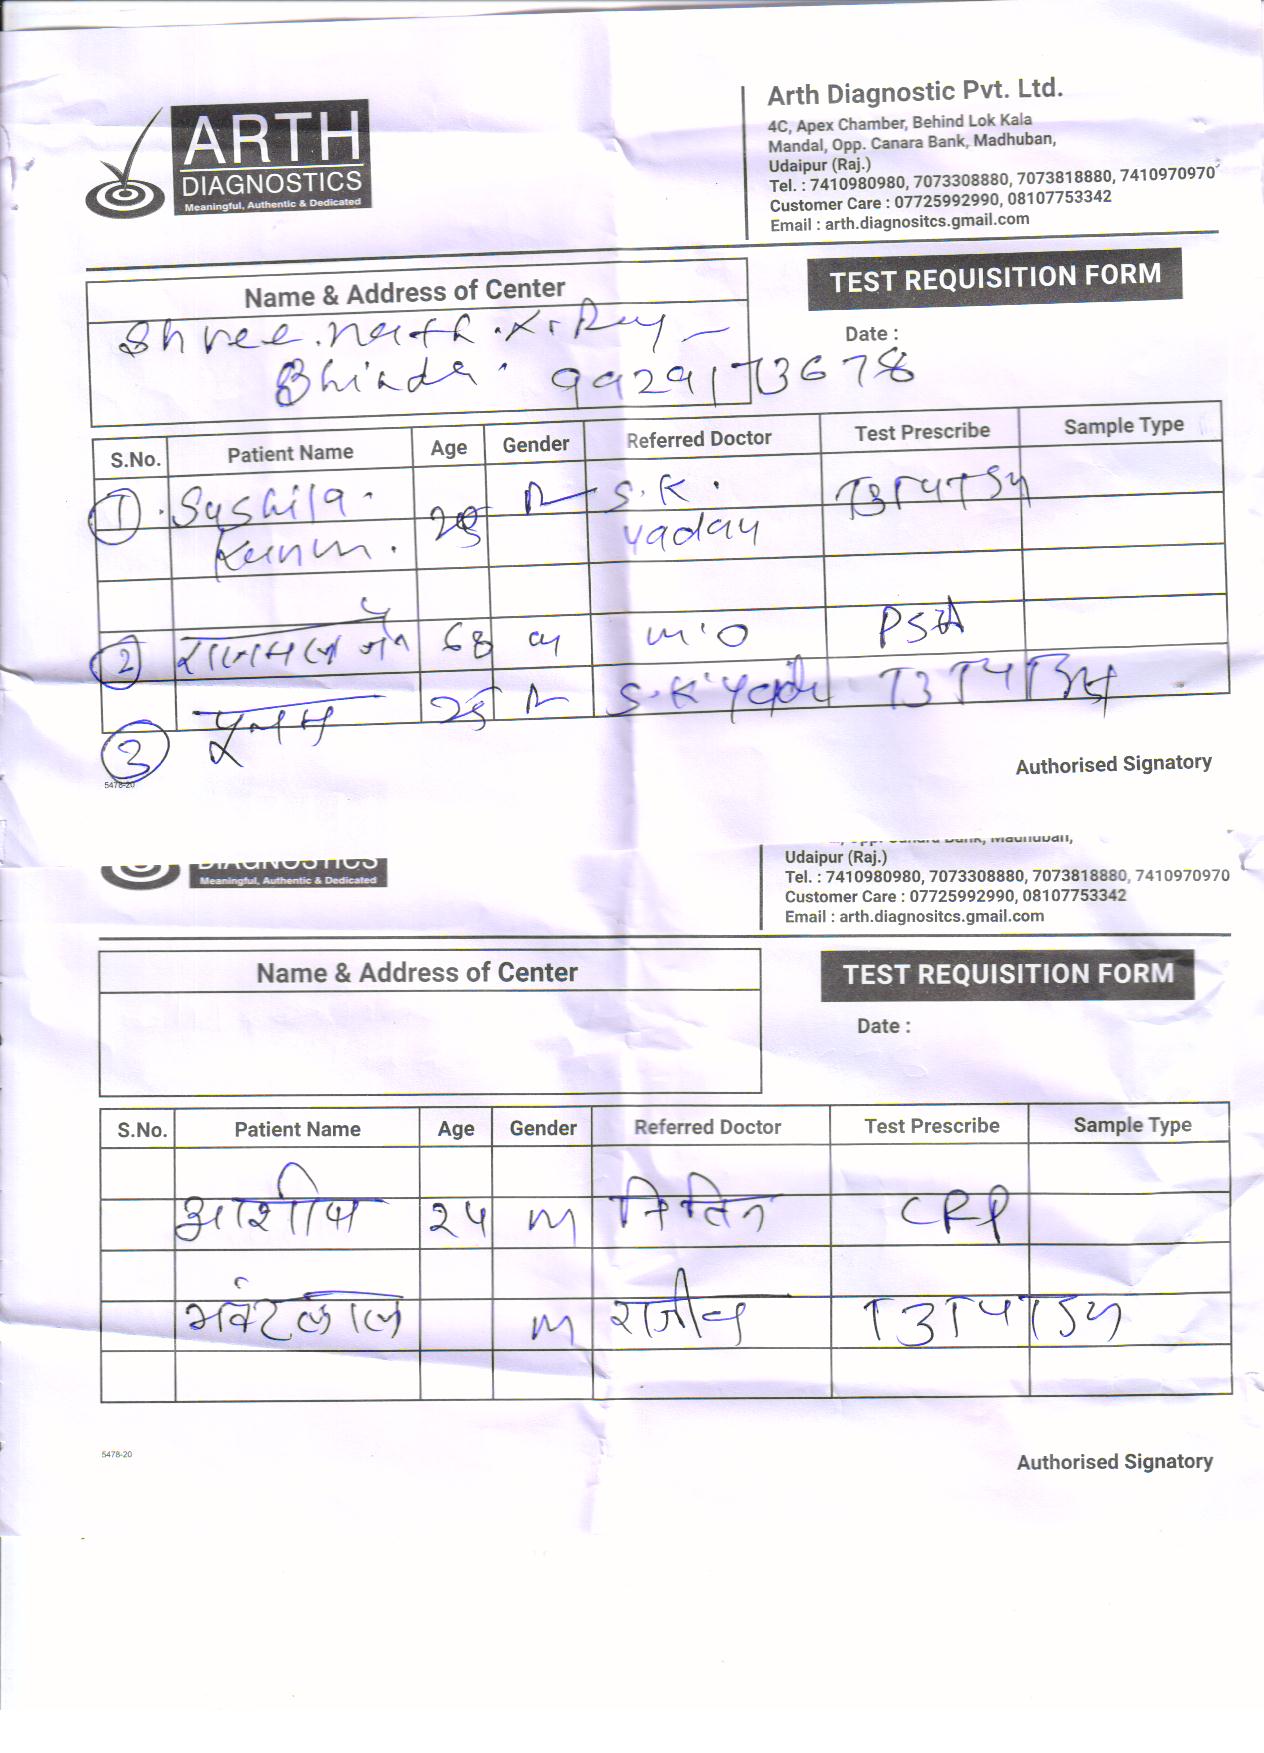 ARTH
DIAGNOSTICS
Meaningful, Authentic & Dedicated
Arth Diagnostic Pvt. Ltd.
4C, Apex Chamber, Behind Lok Kala
Mandal, Opp. Canara Bank, Madhuban,
Udaipur (Raj.)
Tel. : 7410980980, 7073308880, 7073818880, 7410970970
Customer Care : 07725992990, 08107753342
Email : arth.diagnositcs.gmail.com
Name & Address of Center
TEST REQUISITION FORM
Shree. Nath. X. Ray
Date :
Bhinder 9929173678
S.No. Patient Name Age Gender Referred Doctor Test Prescribe Sample Type
1 Sushila S.K. T3T4TSH
yadav
2 68 M.O PSA
3 पुनम 25 S.K. T3T4
5478-20
Authorised Signatory
DIAGNOSTICS
Meaningful, Authentic & Dedicated
Udaipur (Raj.)
Tel. : 7410980980, 7073308880, 7073818880, 7410970970
Customer Care : 07725992990, 08107753342
Email : arth.diagnositcs.gmail.com
Name & Address of Center
TEST REQUISITION FORM
Date :
S.No. Patient Name Age Gender Referred Doctor Test Prescribe Sample Type
आशीष 24 M CRP
भंवरलाल M राजीव T3T4TSH
5478-20
Authorised Signatory